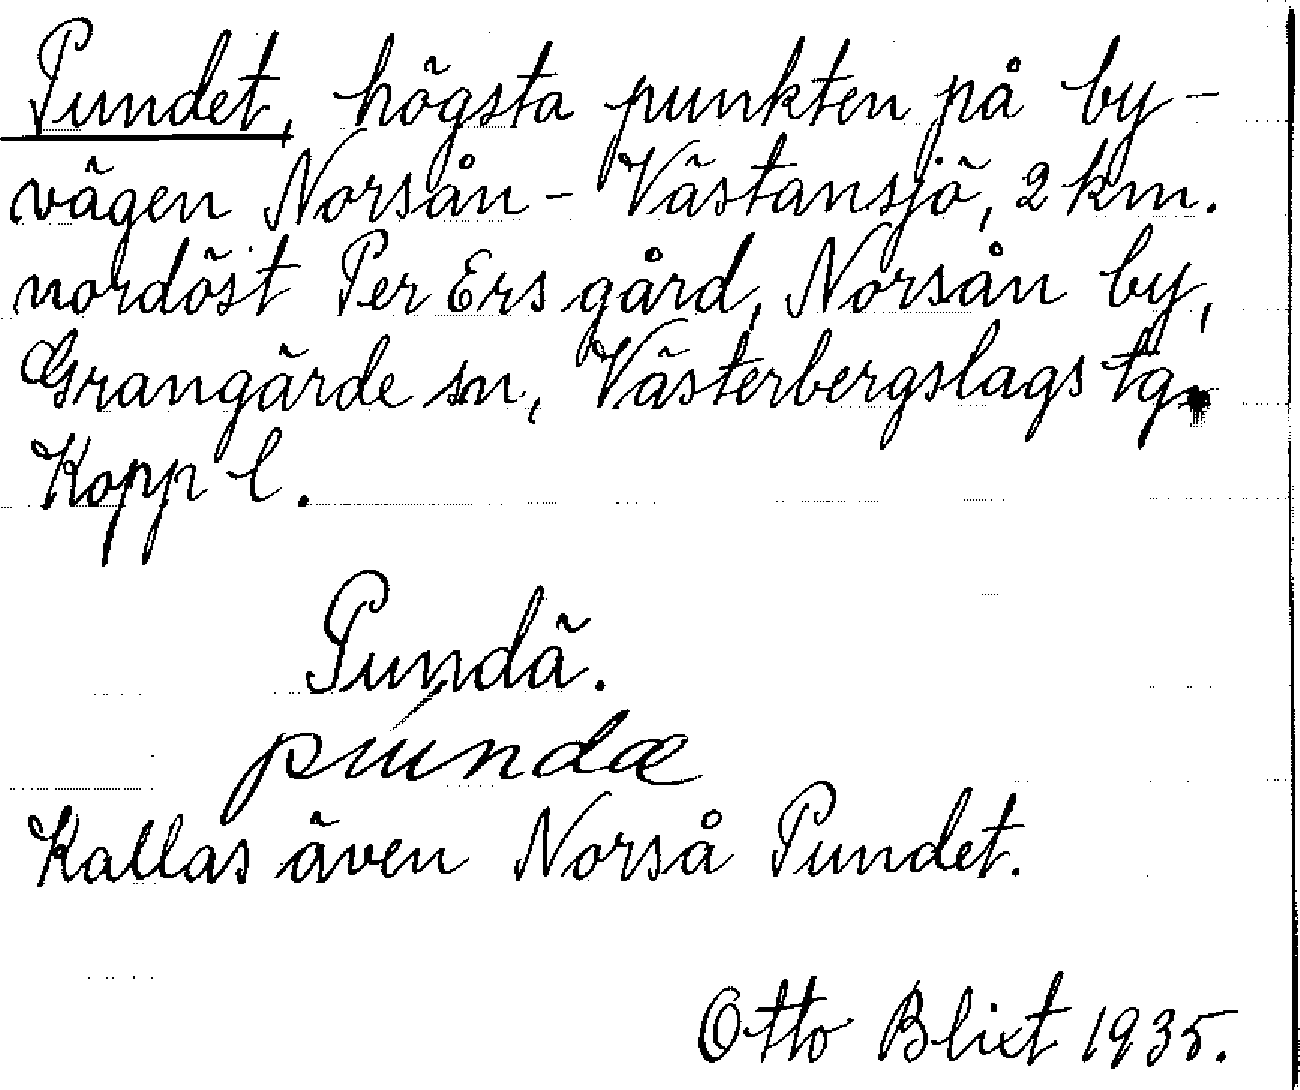 Pundet, högsta punkten på by-
vägen Norsån - Västansjö, 2 km.
nordöst Per Ers gård, Norsån by,
Grangärde sn, Västerbergslags tg.
Kopp l.
Pundä.
púndæ
Kallas även Norså Pundet.
Otto Blixt 1935.